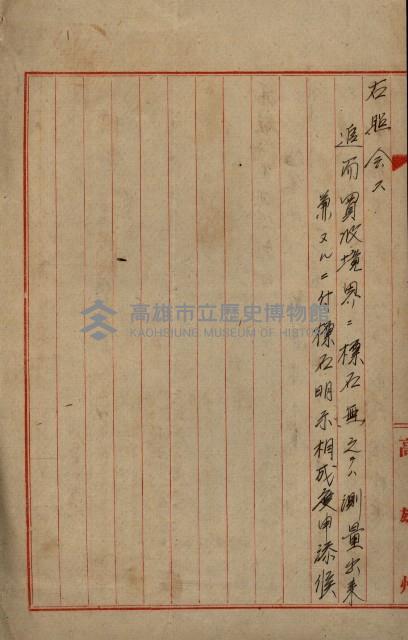 右照会ス
追而買收境界ニ標石無之テハ測量出来
兼ヌルニ付標石明示相成度申添候
高雄州
高雄市立歷史博物館
KAOHSIUNG MUSEUM OF HISTORY